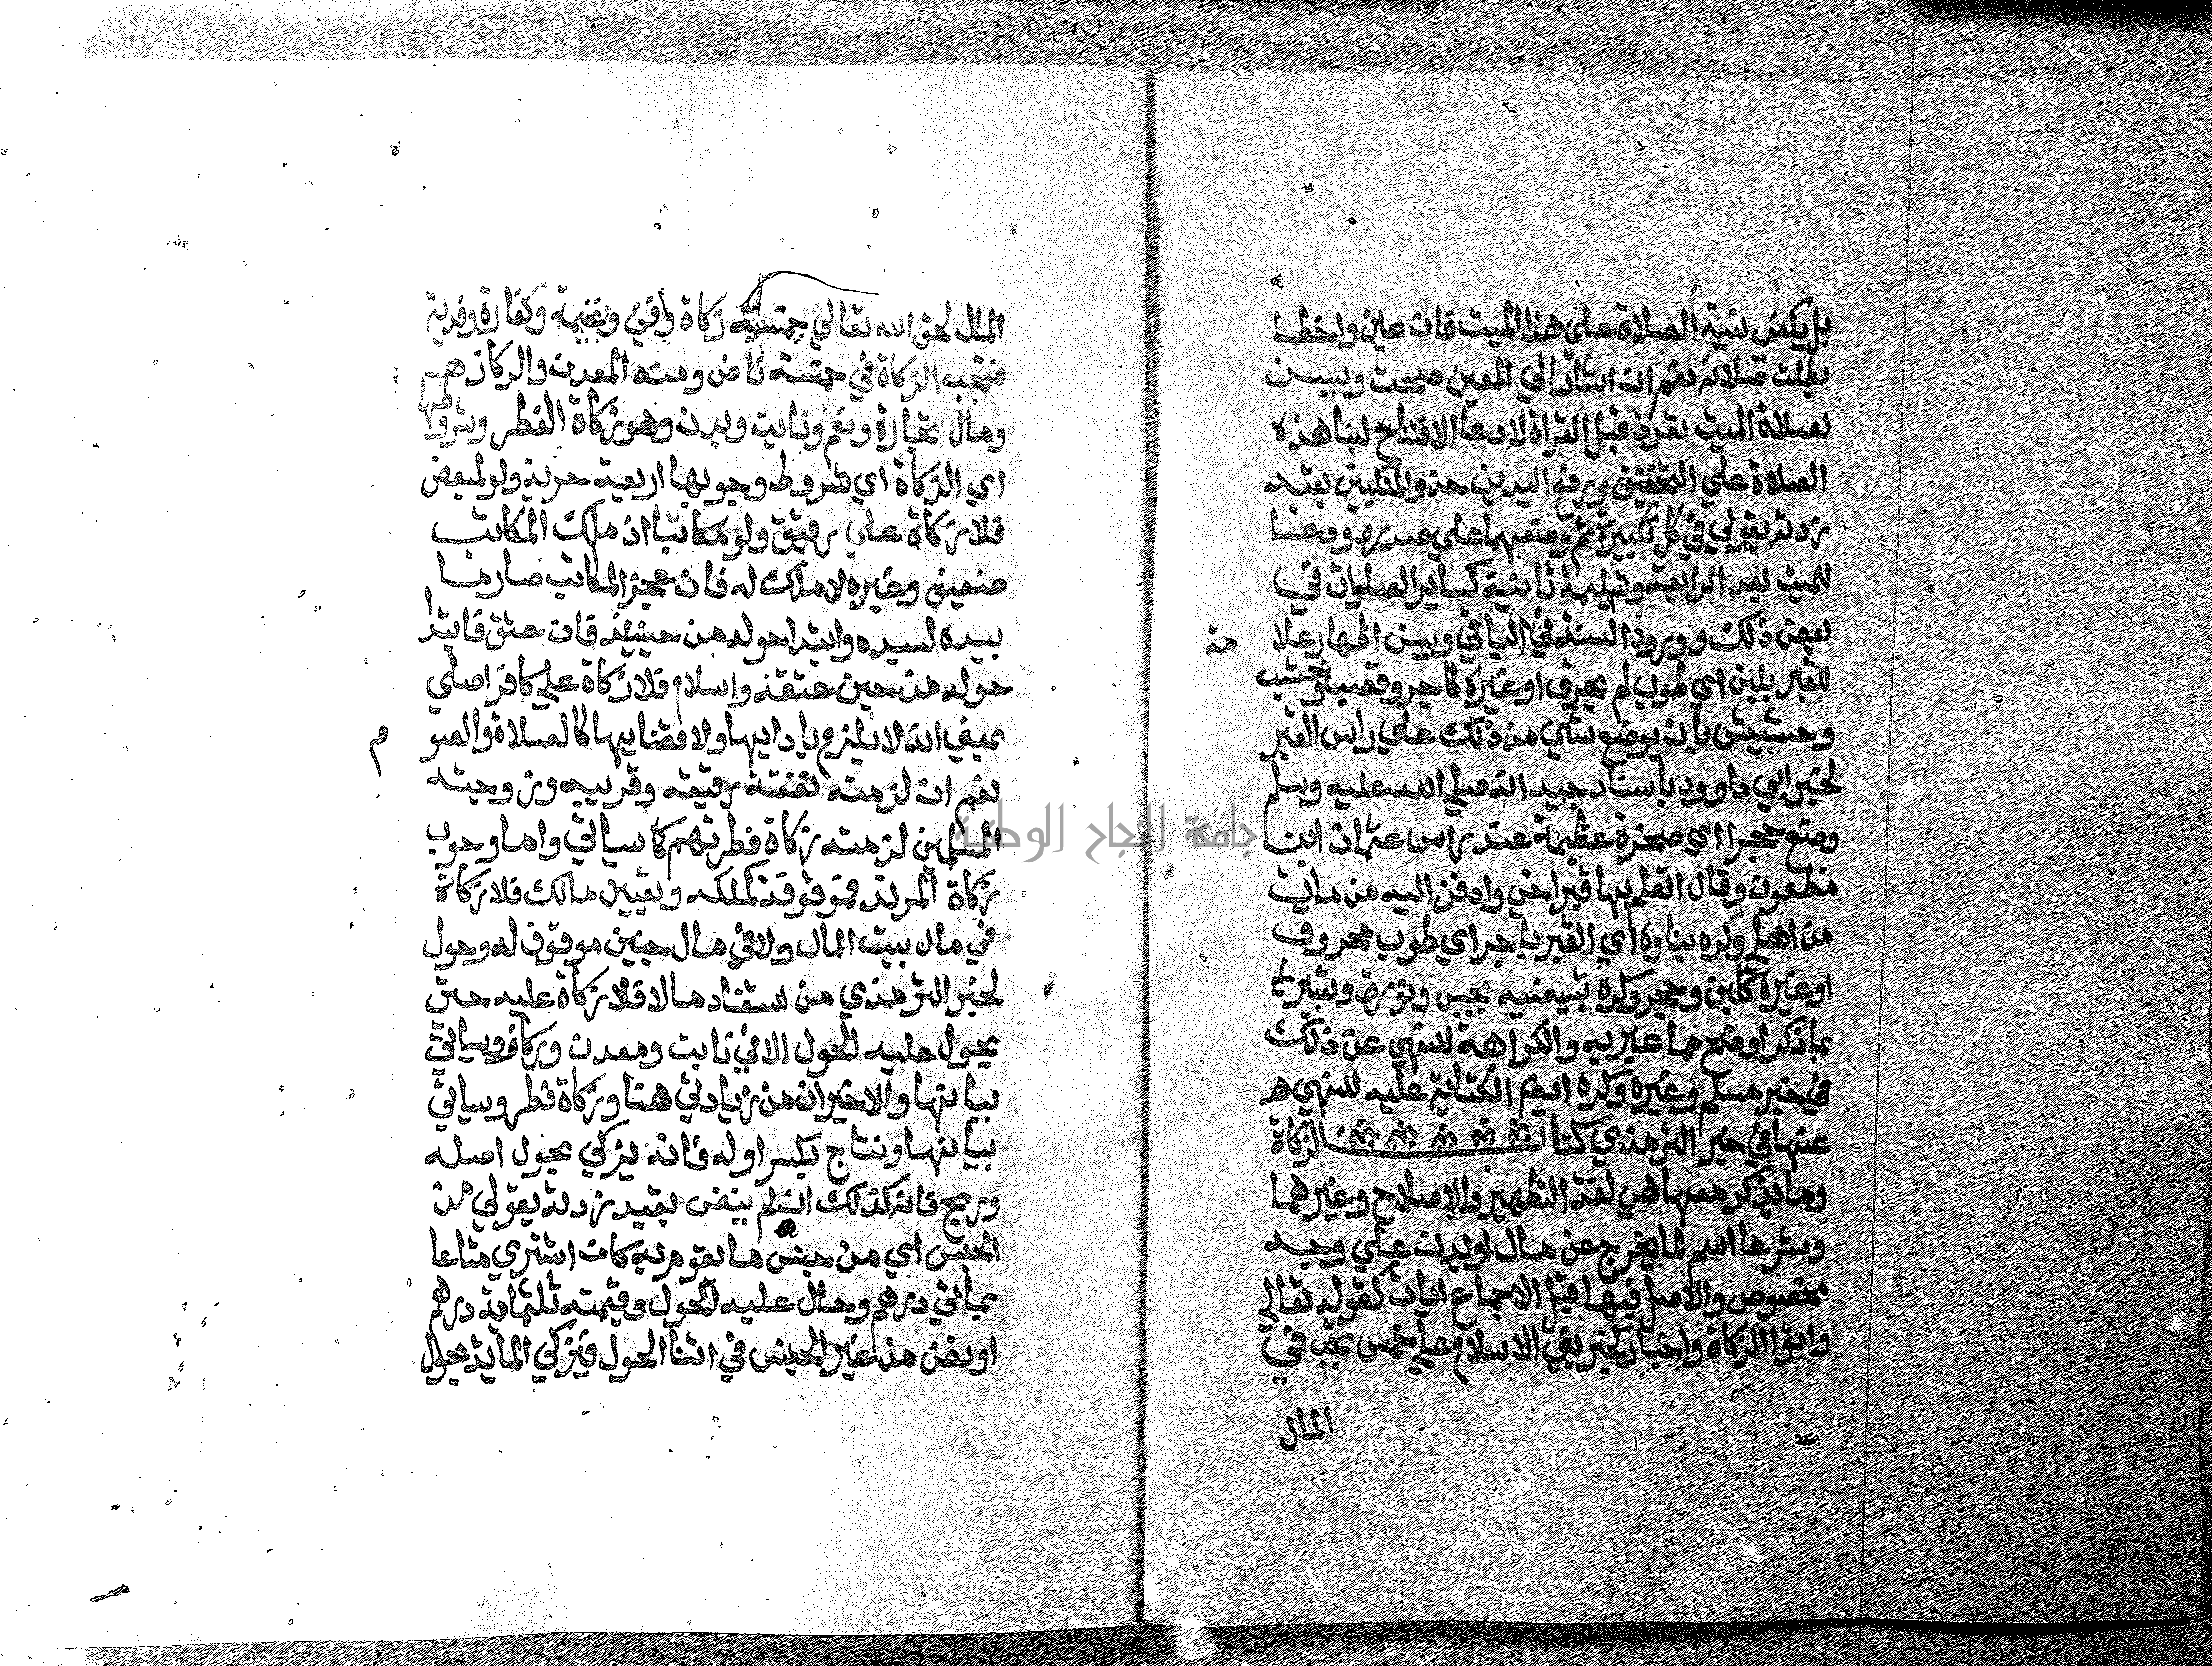 بل يكفي نية الصلاة على هذا الميت فان عين واخطا
بطلت صلاته نعم ان اشار الي المعين صحت ويسن
لصلاة الميت تعوذ قبل القراة لا دعا الافتتاح لبنا هذه
الصلاة علي التخفيف ورفع اليدين حذو المنكبين بقيد
زدته بقولي في كل تكبيرة ثم وضعهما علي صدره ودعا
للميت بعد الرابعة وتسليمة ثانية كساير الصلوات في
بعض ذلك وورود السنة في الباقي ويسن اظهار علامة
للقبر بلبن اي طوب لم يحرق او غيره كاجر وقصب وخشب
وحشيش بان يوضع شي من ذلك علي راس القبر
لخبر ابي داوود باسناد جيد انه صلى الله عليه وسلم
وضع حجرا اي صخرة عظيمة عند راس عثمان ابن
مظعون وقال اتعلم بها قبر اخي وادفن اليه من مات
من اهلي وكره بناوه اي القبر باجر اي طوب محروق
او غيره كلبن وحجر وكره تبييضه بجبس ونورة وتعبيرى
بما ذكر اوضح مما عبر به والكراهة للنهي عن ذلك
في خبر مسلم وغيره وكره ايضا الكتابة عليه للنهي
عنها في خبر الترمذي كتاب الزكاة
وما يذكر معها هي لغة التطهير والاصلاح وغيرهما
وشرعا اسم لما يخرج عن مال او بدن علي وجه
مخصوص والاصل فيها قبل الاجماع ايات كقوله تعالي
واتوا الزكاة واخبار كخبر بني الاسلام علي خمس يجب في
المال
المال لحق الله تعالي خمسة زكاة وفيء وغنيمة وكفارة وفدية
فتجب الزكاة في خمسة ناض ومنه المعدن والركاز
ومال تجارة ونعم ونابت وبدن وهو زكاة الفطر وشروطها
اي الزكاة اي شروط وجوبها اربعة حرية ولو لمبعض
فلا زكاة علي رقيق ولو مكاتبا اذ ملك المكاتب
ضعيف وغيره لا ملك له فان عجز المكاتب صار ما
بيده لسيده وابتدا حوله من حينئذ فان عتق فابتدا
حوله من حين عتقه واسلام فلا زكاة علي كافر اصلي
بمعني انه لا يلزم باداييها ولا قضاييها كالصلاة والصوم
نعم ان لزمته نفقة رقيقه وقريبه وزوجته
المسلمين لزمته زكاة فطرتهم كما سياتي واما وجوب
زكاة المرتد فموقوفة كملكه وتعيين مالك فلا زكاة
في مال بيت المال ولا في مال جنين موقوف له وحول
لخبر الترمذي من استفاد مالا فلا زكاة عليه حتى
يحول عليه الحول الا في نابت ومعدن وركاز وسياتي
بيانها والاخيران من زيادتي هنا وزكاة فطر وسياتي
بيانها ونتاج بكسر اوله فانه يزكي بحول اصله
وربح فانه كذلك ان لم ينض بقيد زدته بقولي من
الجنس اي من جنس ما يقوم به كان اشتري متاعا
بمايتي درهم وحال عليه الحول وقيمته ثلثماية درهم
او نض من غير الجنس في اثنا الحول فيزكي الماية بحول